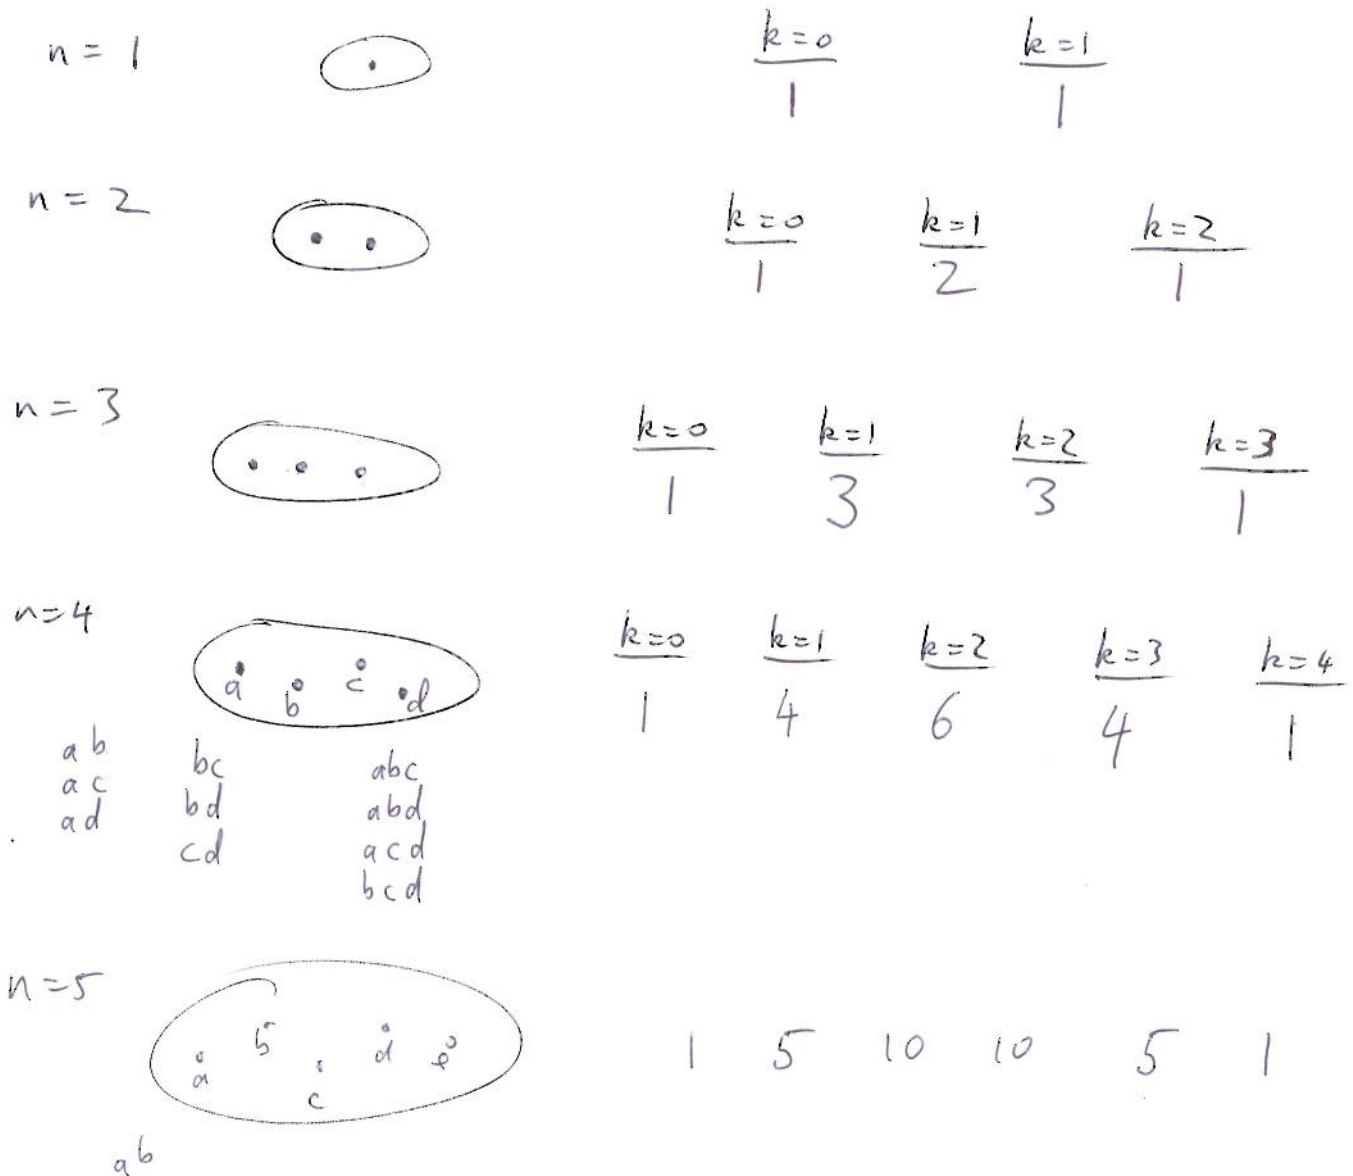 n = 1
k=0 k=1
1 1
n = 2
k=0 k=1 k=2
1 2 1
n = 3
k=0 k=1 k=2 k=3
1 3 3 1
n=4
k=0 k=1 k=2 k=3 k=4
a b c d
1 4 6 4 1
ab bc abc
ac bd abd
ad cd acd
bcd
n=5
a b c d e
1 5 10 10 5 1
ab